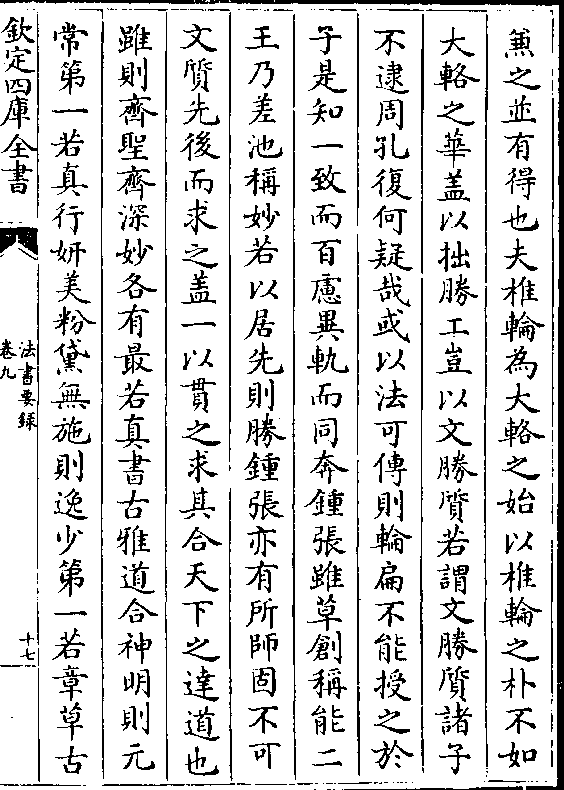 兼之並有得也夫椎輪為大輅之始以椎輪之朴不如
大輅之華盖以拙勝工豈以文勝質若謂文勝質諸子
不逮周孔復何疑哉或以法可傳則輪扁不能授之於
子是知一致而百慮異軌而同奔鍾張雖草創稱能二
王乃差池稱妙若以居先則勝鍾張亦有所師固不可
文質先後而求之盖一以貫之求其合天下之達道也
雖則齊聖齊深妙各有最若真書古雅道合神明則元
常第一若真行妍美粉黛無施則逸少第一若章草古
欽定四庫全書
法書要録
卷九
十七